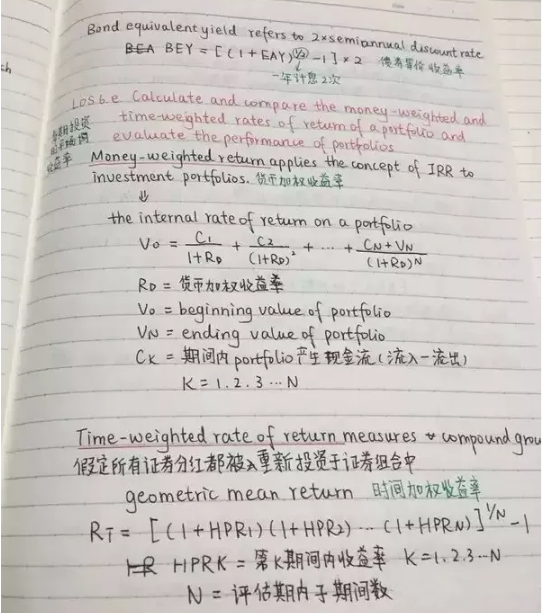 Bond equivalent yield refers to 2×semiannual discount rate
BEA BEY = [(1+EAY)^½ -1] × 2 债券等价收益率
一年计息2次
ch
LOS 6.e Calculate and compare the money-weighted and
time-weighted rates of return of a portfolio and
evaluate the performance of portfolios
投资
收益率
Money-weighted return applies the concept of IRR to
investment portfolios. 货币加权收益率
⇓
the internal rate of return on a portfolio
V₀ = C₁/(1+R_D) + C₂/(1+R_D)² + ··· + (C_N+V_N)/(1+R_D)^N
R_D = 货币加权收益率
V₀ = beginning value of portfolio
V_N = ending value of portfolio
C_K = 期间内portfolio产生现金流(流入-流出)
K = 1. 2. 3 ··· N
Time-weighted rate of return measures compound grou
假定所有证券分红都被重新投资于证券组合中
geometric mean return 时间加权收益率
R_T = [(1+HPR₁)(1+HPR₂) ··· (1+HPR_N)]^1/N -1
HR HPRK = 第K期间内收益率 K=1.2.3···N
N = 评估期内子期间数